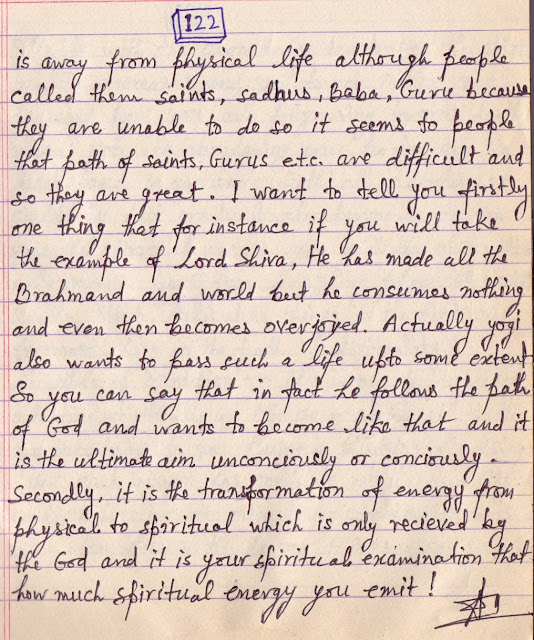 122
is away from physical life although people
called them saints, sadhus, Baba, Guru because
they are unable to do so it seems to people
that path of saints, Gurus etc. are difficult and
so they are great. I want to tell you firstly
one thing that for instance if you will take
the example of Lord Shiva, He has made all the
Brahmand and world but he consumes nothing
and even then becomes overjoyed. Actually yogi
also wants to pass such a life upto some extent
So you can say that in fact he follows the path
of God and wants to become like that and it
is the ultimate aim unconciously or conciously.
Secondly, it is the transformation of energy from
physical to spiritual which is only recieved by
the God and it is your spiritual examination that
how much spiritual energy you emit!